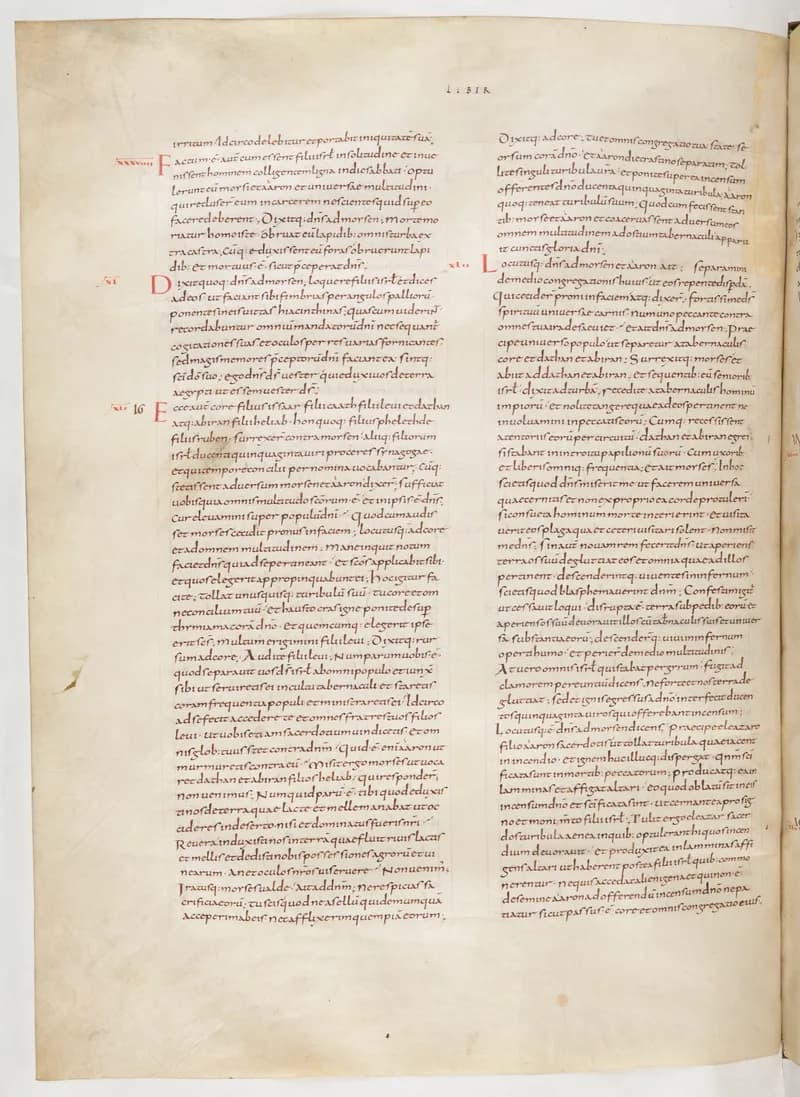 LIBER
irritum Idcirco delebitur et portabit iniquitatē suā;
xxxviiii
Factum ē aut cum essent filii isrł in solitudine et inue
nissent hominem colligentem ligna in die sabbati · optu
lerunt eū morsi et aaron et uniuersae multitudini ·
qui recluser eum in carcerem nescientes quid sup eo
facere deberent; Dixitq: dns ad morsen; morte mo
riatur homo iste · obruat eū lapidib: omnis turba ex
tra castra; Cūq: eduxissent eū foras obruerunt lapi
dib: et mortuus ē · sicut pceperat dns;
xl
Dixit quoq: dns ad morsen; loquere filiis isrł et dices
ad eos ut faciant sibi fimbrias per angulos palliorū
ponentes in eis uittas hiacinthinas; quas cum uiderint
recordabuntur omnium mandatorū dni nec sequant
cogitationes suas et oculos per res uarias fornicantes ·
sed magis memores pceptorū dni faciant ea · sintq:
sci dō suo; ego dns ds uester qui eduxi uos de terra
aegypti ut essem uester ds;
xli
16
Ecce aut core filius issaar filii caath filii leui et dathan
atq: abiran filii heliab · hon quoq: filius pheleth de
filiis ruben · surrexer contra morsen · aliiq: filiorum
isrł ducenti quinquaginta uiri proceres synagogae ·
et qui tempore concilii per nomina uocabantur; Cūq:
stetissent aduersum morsen et aaron dixer; sufficiat
uobis quia omnis multitudo scorum ē · et in ipsis ē dns;
Cur eleuamini super populū dni · Quod cum audis
set morses cecidit pronus in faciem; locutusq: ad core
et ad omnem multitudinem; Mane inquit notum
faciet dns qui ad se pertineant · et scos applicabit sibi ·
et quos elegerit appropinquabunt ei; Hoc igitur fa
cite; tollat unusquisq: turibulū suū · tu core et om
ne concilium tuū · et hausto cras igne ponite desup
thymiama corā dno · et quemcumq: elegerit ipse
erit scs; multum erigimini filii leui; Dixitq: rur
sum ad core; Audite filii leui; Num parum uobis ē ·
quod separauit uos ds isrł ab omni populo et iunx
sibi ut seruiretis ei in cultu tabernaculi et staretis
coram frequentia populi et ministraretis ei Idcirco
ad se fecit accedere te et omnes fratres tuos filios
leui · ut uobis etiam sacerdotium uindicetis et om
nis glob: tuus stet contra dnm · Quid ē eni aaron ut
murmuretis contra eū · Misit ergo morses ut uoca
ret dathan et abiran filios heliab; qui responder;
non uenimus; Numquid parū ē tibi quod eduxis
ti nos de terra quae lacte et melle manabat ut oc
cideres in deserto nisi et dominatus fueris nri ·
Reuera induxisti nos in terrā quae fluit riuis lactis
et mellis et dedisti nobis possessiones agrorū et ui
nearum · An et oculos nros uis eruere · Non uenim;
Iratusq: morses ualde · Ait ad dnm; Ne respicias sa
crificia eorū; tu scis quod ne asellū quidem umquā
acceperim ab eis nec afflixerim quempiā eorum;
Dixitq: ad core; tu et omnis congregatio tua state se
orsum corā dno · et aaron die crastino separatim; tol
lite singuli turibula urā et ponite super ea incensum
offerentes dno ducenta quinquaginta turibula; aaron
quoq: teneat turibulū suum; Quod cum fecissent stan
tib: morse et aaron et coaceruassent aduersum eos
omnem multitudinem ad ostium tabernaculi apparu
it cunctis gloria dni;
xlii
Locutusq: dns ad morsen et aaron ait; separamini
de medio congregationis huius ut eos repente dispdā ·
Qui cecider proni in faciē atq: dixer; fortissime ds
spirituū uniuersae carnis; Num uno peccante contra
omnes tua ira desaeuiet · et ait dns ad morsen; Prae
cipe uniuerso populo ut separetur a tabernaculis
core et dathan et abiran; Surrexitq: morses et
abiit ad dathan et abiran; et sequentib: eū seniorib:
isrł · dixit ad turbā; recedite a tabernaculis hominū
impiorū et nolite tangere quae ad eos pertinent ne
inuoluamini in peccatis eorū; Cumq: recessissent
a tentoriis eorū per circuitū · dathan et abiran egressi
stabant in introitu papilionū suorū · Cum uxorib:
et liberis omniq: frequentia; et ait morses; In hoc
scietis quod dns miserit me ut facerem uniuersa
quae cernitis et non ex proprio ea corde protulerī
si consueta hominum morte interierint · et uisita
uerit eos plaga qua et ceteri uisitari solent · Non misit
me dns; sin aut nouam rem fecerit dns ut aperiens
terra os suū deglutiat eos et omnia quae ad illos
pertinent · descenderintq: uiuentes in infernum ·
scietis quod blasphemauerint dnm; Confestim igit
ut cessauit loqui · disrupta ē terra sub pedib: eorū et
aperiens os suū deuorauit illos cū tabernaculis suis et uniuer
sa substantia eorū; descenderq: uiui in infernum
operti humo · et perier de medio multitudinis;
At uero omnis isrł qui stabat per gyrum · fugit ad
clamorem pereuntiū dicens · Ne forte et nos terra de
glutiat; sed et ignis egressus a dno interfecit ducen
tos quinquaginta uiros qui offerebant incensum;
Locutusq: ē dns ad morsen dicens; praecipe eleazaro
filio aaron sacerdotis ut tollat turibula quae iacent
in incendio · et ignem huc illucq: dispergat · qnm sci
ficata sunt in mortib: peccatorum; producatq: ea in
laminas et affigat altari · eo quod oblatū sit in eis
incensum dno et scificata sint · ut cernant ea pro sig
no et monimto filii isrł; Tulit ergo eleazar sacer
dos turibula aenea in quib: optulerant hi quos incen
dium deuorauit · et produxit ea in laminas affi
gens altari ut haberent postea filii isrł quib: commo
nerentur · nequis accedat alienigena et qui non ē
de semine aaron ad offerendū incensum dno ne pa
tiatur sicut passus ē core et omnis congregatio eius ·